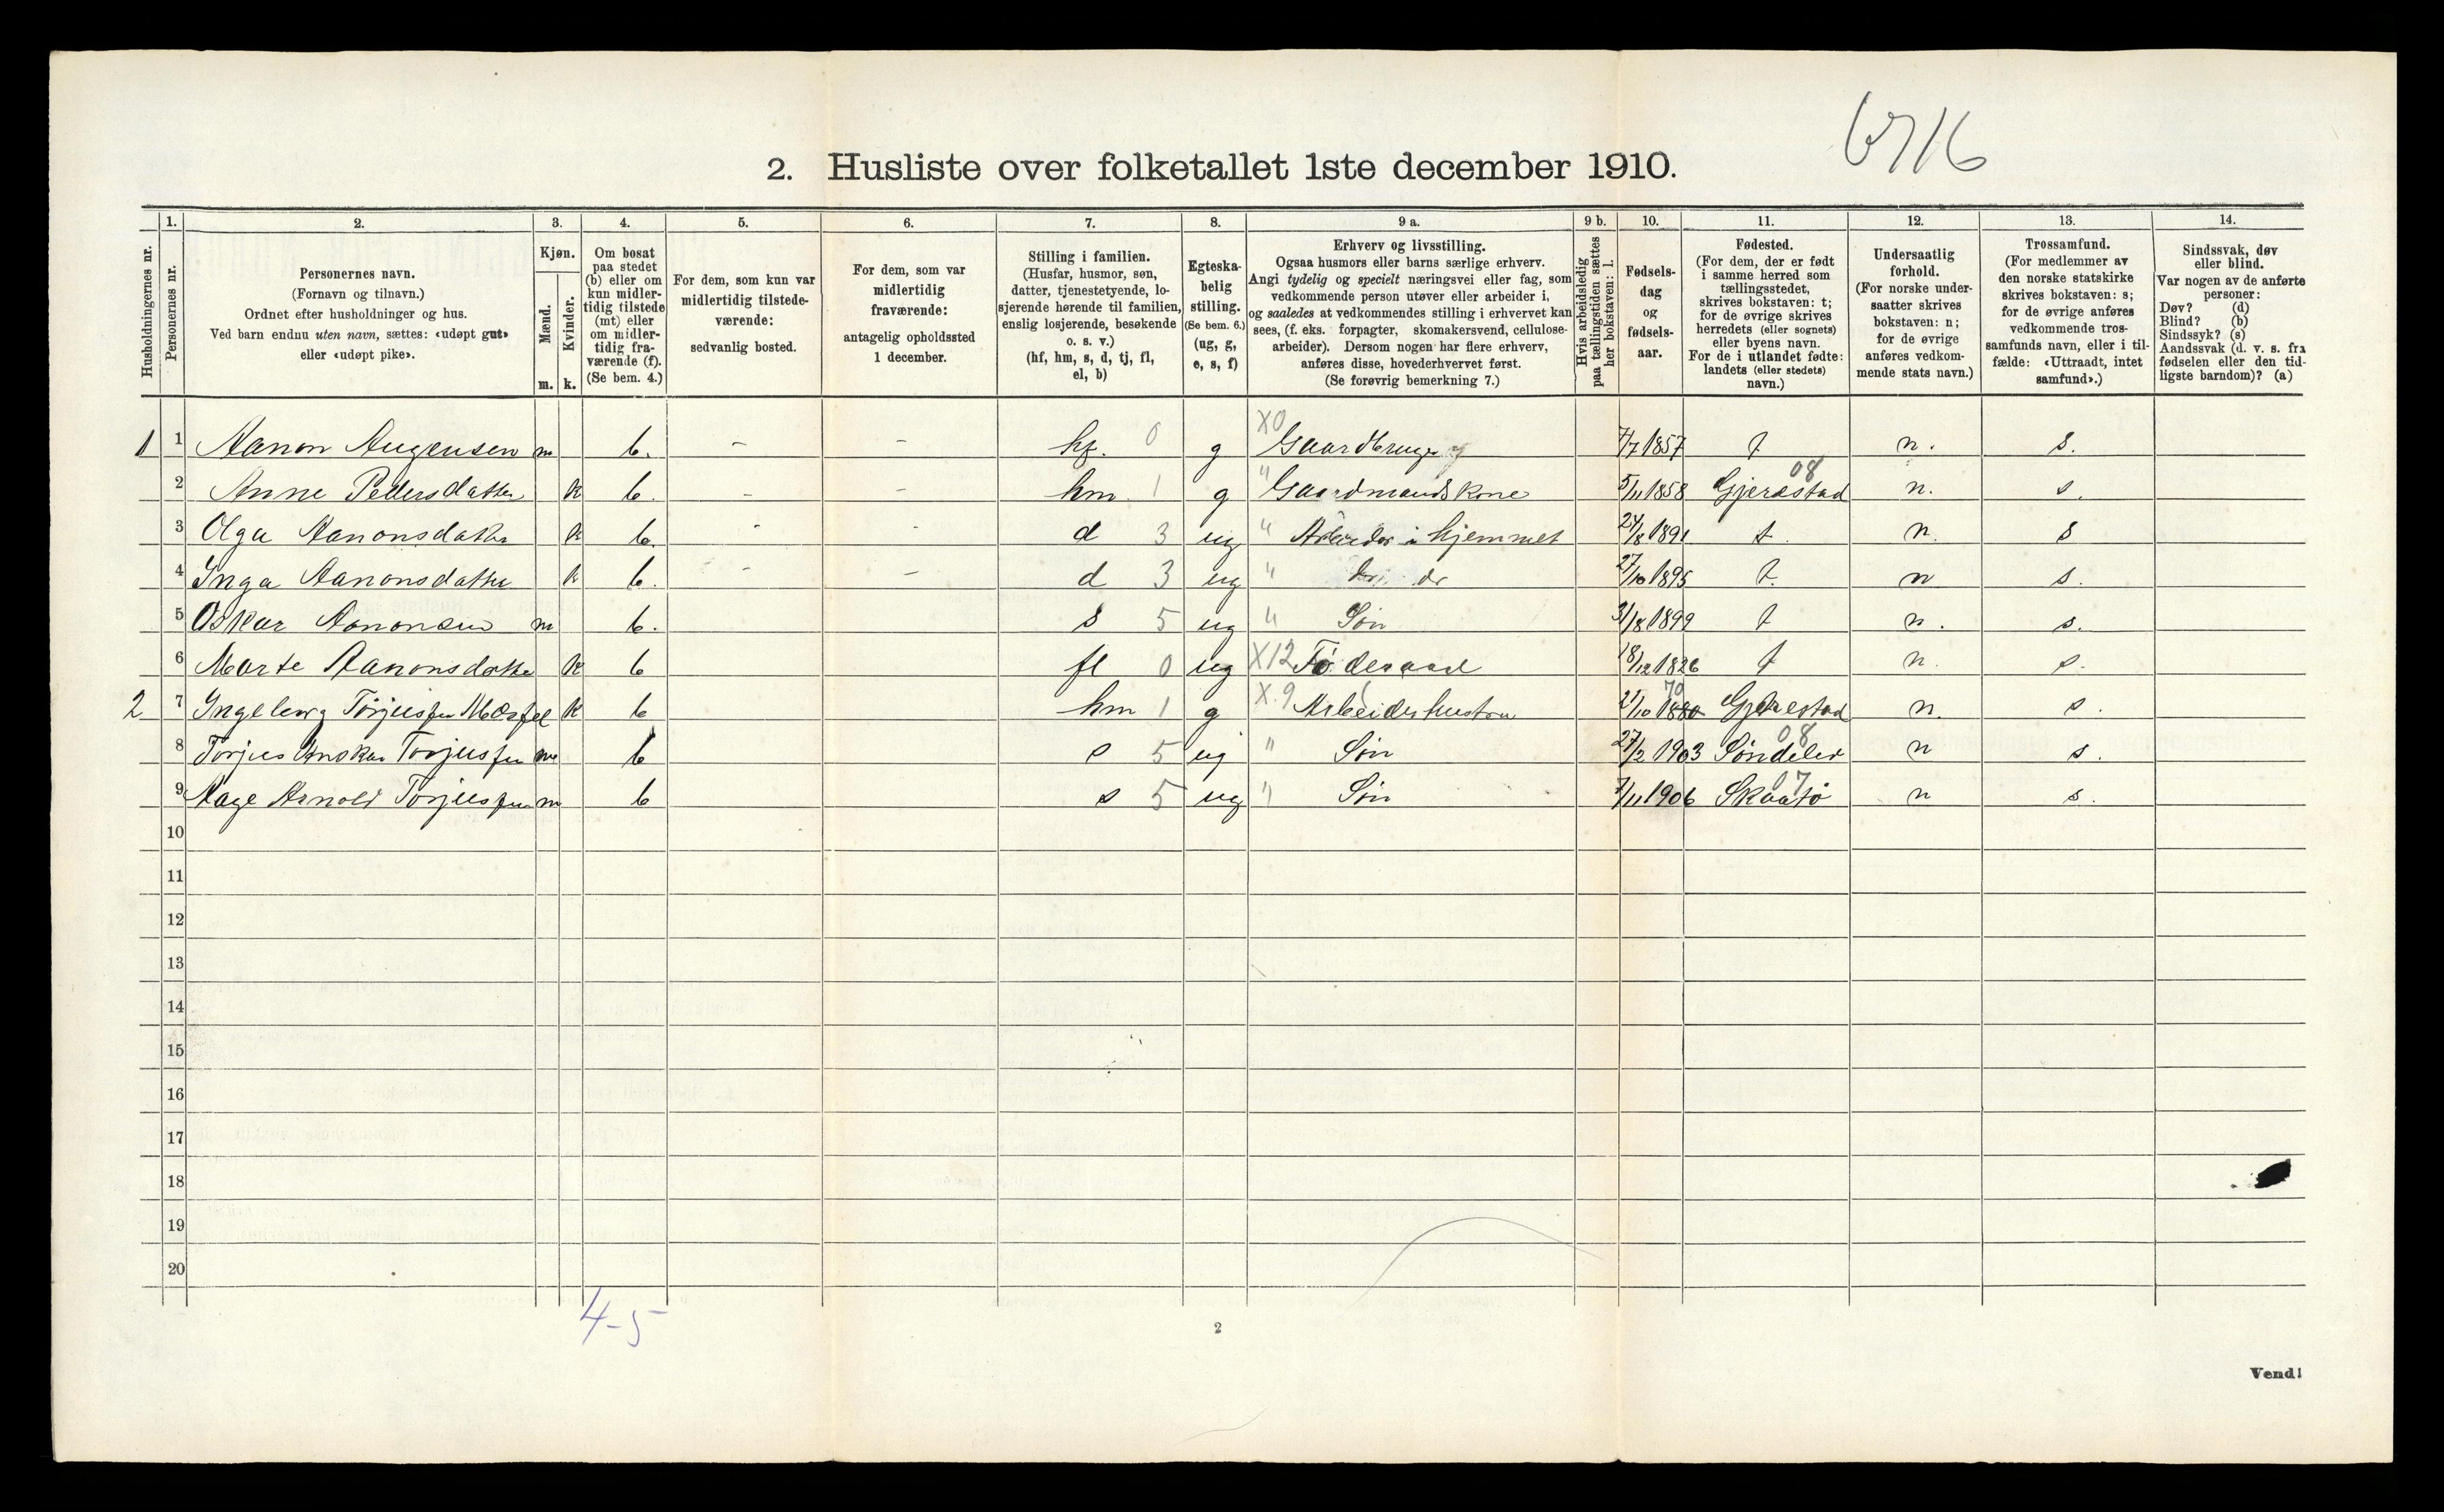 6716
2. Husliste over folketallet 1ste december 1910.
Husholdningernes nr.
1. Personernes nr.
2. Personernes navn. (Fornavn og tilnavn.) Ordnet efter husholdninger og hus. Ved barn endnu uten navn, sættes: «udøpt gut» eller «udøpt pike».
3. Kjøn. Mænd. m. Kvinder. k.
4. Om bosat paa stedet (b) eller om kun midlertidig tilstede (mt) eller om midlertidig fraværende (f). (Se bem. 4.)
5. For dem, som kun var midlertidig tilstedeværende: sedvanlig bosted.
6. For dem, som var midlertidig fraværende: antagelig opholdssted 1 december.
7. Stilling i familien. (Husfar, husmor, søn, datter, tjenestetyende, losjerende hørende til familien, enslig losjerende, besøkende o. s. v.) (hf, hm, s, d, tj, fl, el, b)
8. Egteskabelig stilling. (Se bem. 6.) (ug, g, e, s, f)
9 a. Erhverv og livsstilling. Ogsaa husmors eller barns særlige erhverv. Angi tydelig og specielt næringsvei eller fag, som vedkommende person utøver eller arbeider i, og saaledes at vedkommendes stilling i erhvervet kan sees, (f. eks. forpagter, skomakersvend, cellulosearbeider). Dersom nogen har flere erhverv, anføres disse, hovederhvervet først. (Se forøvrig bemerkning 7.)
9 b. Hvis arbeidsledig paa tællingstiden sættes her bokstaven: l.
10. Fødselsdag og fødselsaar.
11. Fødested. (For dem, der er født i samme herred som tællingsstedet, skrives bokstaven: t; for de øvrige skrives herredets (eller sognets) eller byens navn. For de i utlandet fødte: landets (eller stedets) navn.)
12. Undersaatlig forhold. (For norske undersaatter skrives bokstaven: n; for de øvrige anføres vedkommende stats navn.)
13. Trossamfund. (For medlemmer av den norske statskirke skrives bokstaven: s; for de øvrige anføres vedkommende trossamfunds navn, eller i tilfælde: «Uttraadt, intet samfund».)
14. Sindssvak, døv eller blind. Var nogen av de anførte personer: Døv? (d) Blind? (b) Sindssyk? (s) Aandssvak (d. v. s. fra fødselen eller den tidligste barndom)? (a)
1 1 Aanon Augensen m b. - - hf. 0 g X0 Gaardbruger 7/7 1857 t n. s.
2 Anne Pedersdatter k b. - - hm. 1 g " Gaardmandskone 5/11 1858 Gjerestad 08 n. s.
3 Olga Aanonsdatter k b. - - d 3 ug " Arbeider i hjemmet 24/8 1891 t. n. s
4 Inga Aanonsdatter k b. - - d 3 ug " do do 27/10 1895 t. n s.
5 Oskar Aanonsen m b. s 5 ug " Søn 31/8 1899 t n. s.
6 Marte Aanonsdatter k b fl 0 ug X12 Føderaad 18/12 1826 t n. s.
2 7 Ingeborg Torjussen k b hm 1 g X.9 Arbeiderhustru 21/10 1880 70 Gjerestad n. s.
8 Torjus Torjussen m b s 5 ug " Søn 27/2 1903 Søndeled 08 n s.
9 Aage Arnold Torjussen m b s 5 ug " Søn 7/11 1906 Skaatø 07 n s.
10
11
12
13
14
15
16
17
18
19
20
4-5
2
Vend!